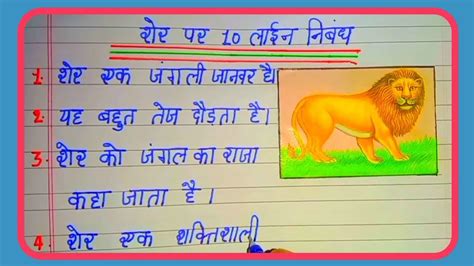 शेर पर 10 लाईन निबंध
1. शेर एक जंगली जानवर है।
2. यह बहुत तेज दौड़ता है।
3. शेर को जंगल का राजा
कहा जाता है।
4. शेर एक शक्तिशाली